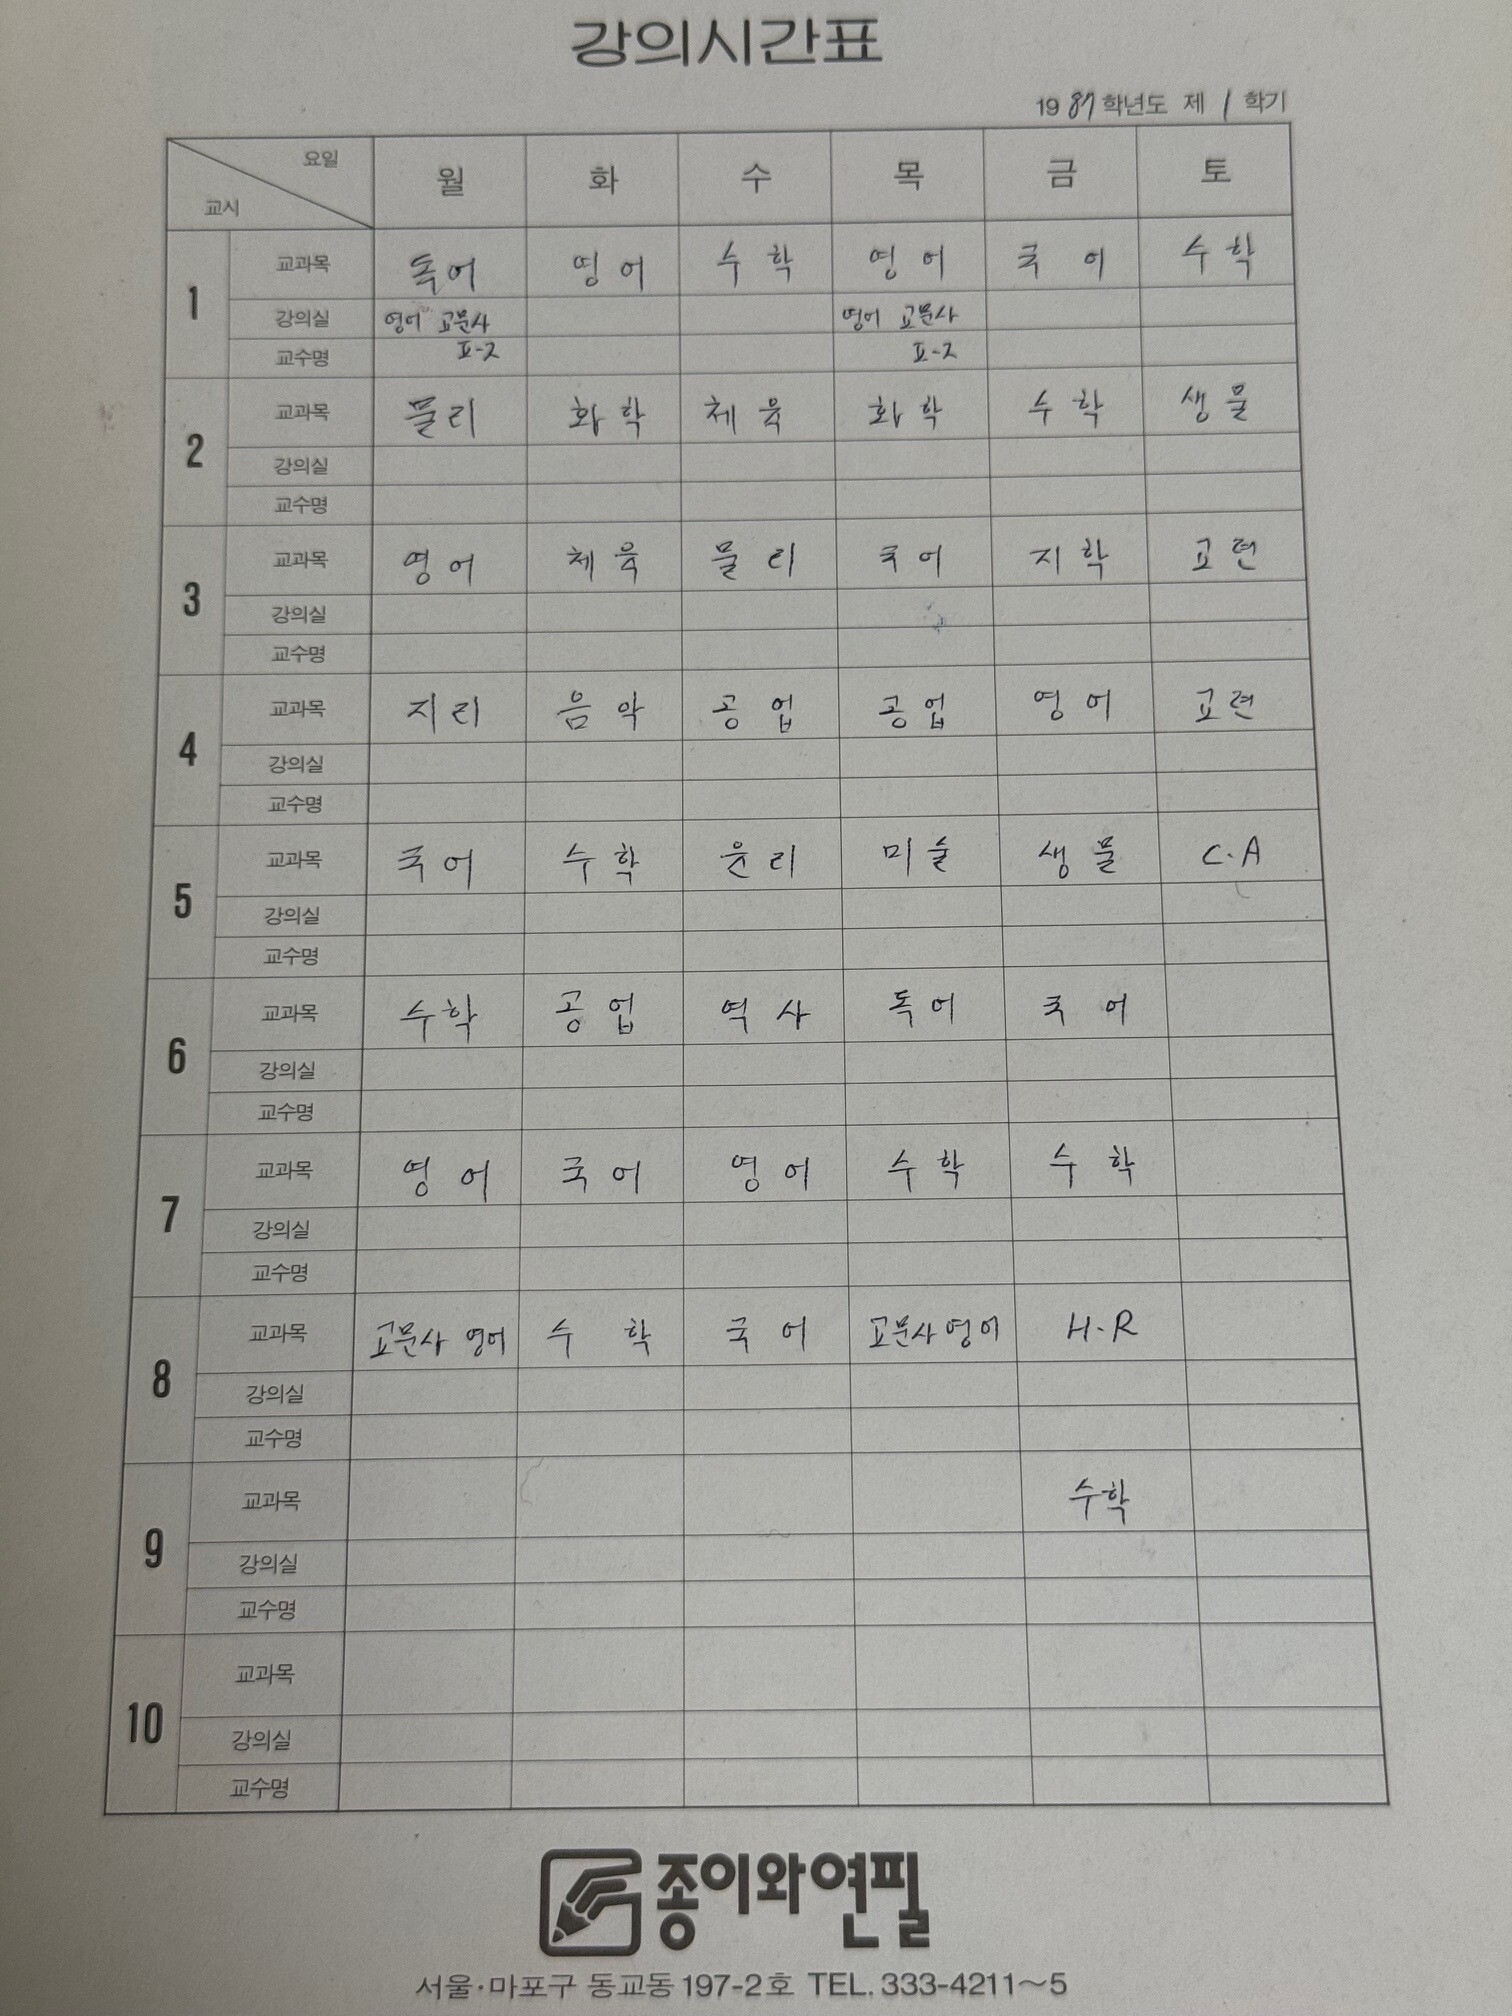 강의시간표
1987학년도 제 1 학기
요일 월 화 수 목 금 토
교시
1 교과목 독어 영어 수학 영어 국어 수학
강의실 영어 교문사 영어 교문사
교수명 II-2 II-2
2 교과목 물리 화학 체육 화학 수학 생물
강의실
교수명
3 교과목 영어 체육 물리 국어 지학 교련
강의실
교수명
4 교과목 지리 음악 공업 공업 영어 교련
강의실
교수명
5 교과목 국어 수학 윤리 미술 생물 C.A
강의실
교수명
6 교과목 수학 공업 역사 독어 국어
강의실
교수명
7 교과목 영어 국어 영어 수학 수학
강의실
교수명
8 교과목 교문사 영어 수학 국어 교문사 영어 H.R
강의실
교수명
9 교과목 수학
강의실
교수명
10 교과목
강의실
교수명
종이와연필
서울·마포구 동교동 197-2호 TEL. 333-4211~5